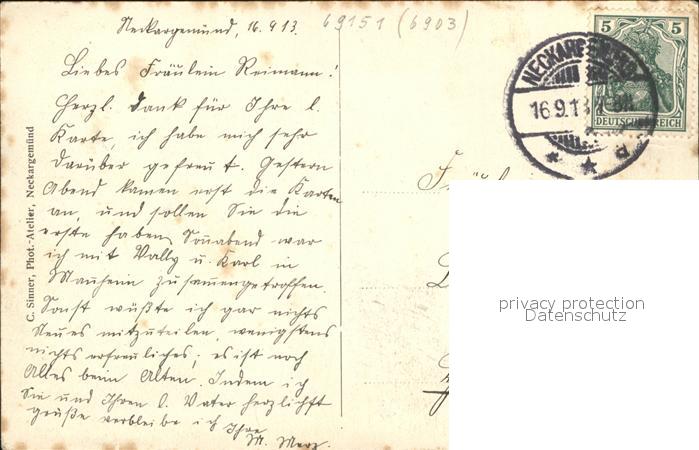 Neckargemünd, 16.9.13.
69151 (6903)
Liebes Fräulein Reimann!
Herzl. Dank für Ihre l.
Karte, ich habe mich sehr
darüber gefreut. Gestern
Abend kamen erst die Karten
an, und sollen Sie die
erste haben. Sonnabend war
ich mit Vally u. Karl in
Mannheim zusammengetroffen.
Sonst wüßte ich gar nichts
Neues mitzuteilen, wenigstens
nichts erfreuliches; es ist noch
Alles beim Alten. Indem ich
Sie und Ihren l. Vater herzlichst
grüße verbleibe ich Ihre
M. Merz.
C. Sinner, Phot.-Atelier, Neckargemünd
NECKARGEMÜND
16.9.13
d
5 5
DEUTSCHES REICH
privacy protection
Datenschutz